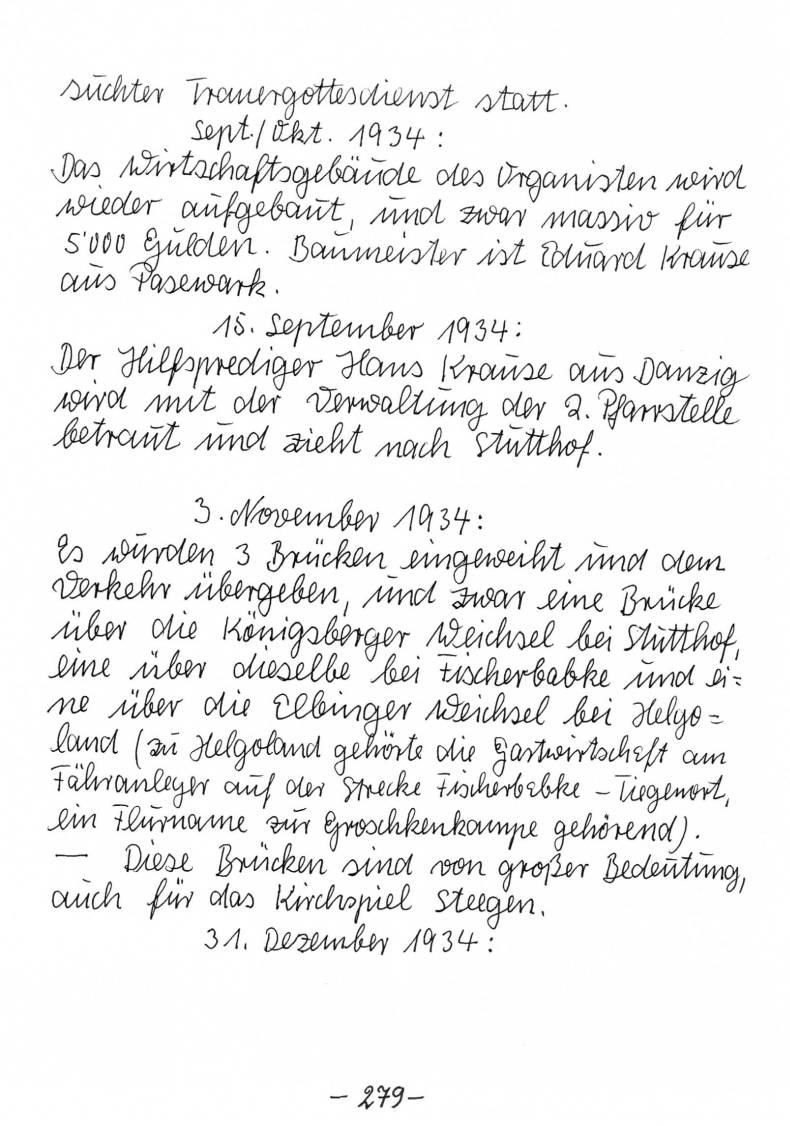 suchter Trauergottesdienst statt.
Sept./Okt. 1934:
Das Wirtschaftsgebäude des Organisten wird
wieder aufgebaut, und zwar massiv für
5'000 Gulden. Baumeister ist Eduard Krause
aus Pasewark.
15. September 1934:
Der Hilfsprediger Hans Krause aus Danzig
wird mit der Verwaltung der 2. Pfarrstelle
betraut und zieht nach Stutthof.
3. November 1934:
Es wurden 3 Brücken eingeweiht und dem
Verkehr übergeben, und zwar eine Brücke
über die Königsberger Weichsel bei Stutthof,
eine über dieselbe bei Fischerbabke und ei=
ne über die Elbinger Weichsel bei Helgo=
land (zu Helgoland gehörte die Gastwirtschaft am
Fähranleger auf der Strecke Fischerbabke – Tiegenort,
ein Flurname zur Groschkenkampe gehörend).
— Diese Brücken sind von großer Bedeutung,
auch für das Kirchspiel Steegen.
31. Dezember 1934:
– 279 –